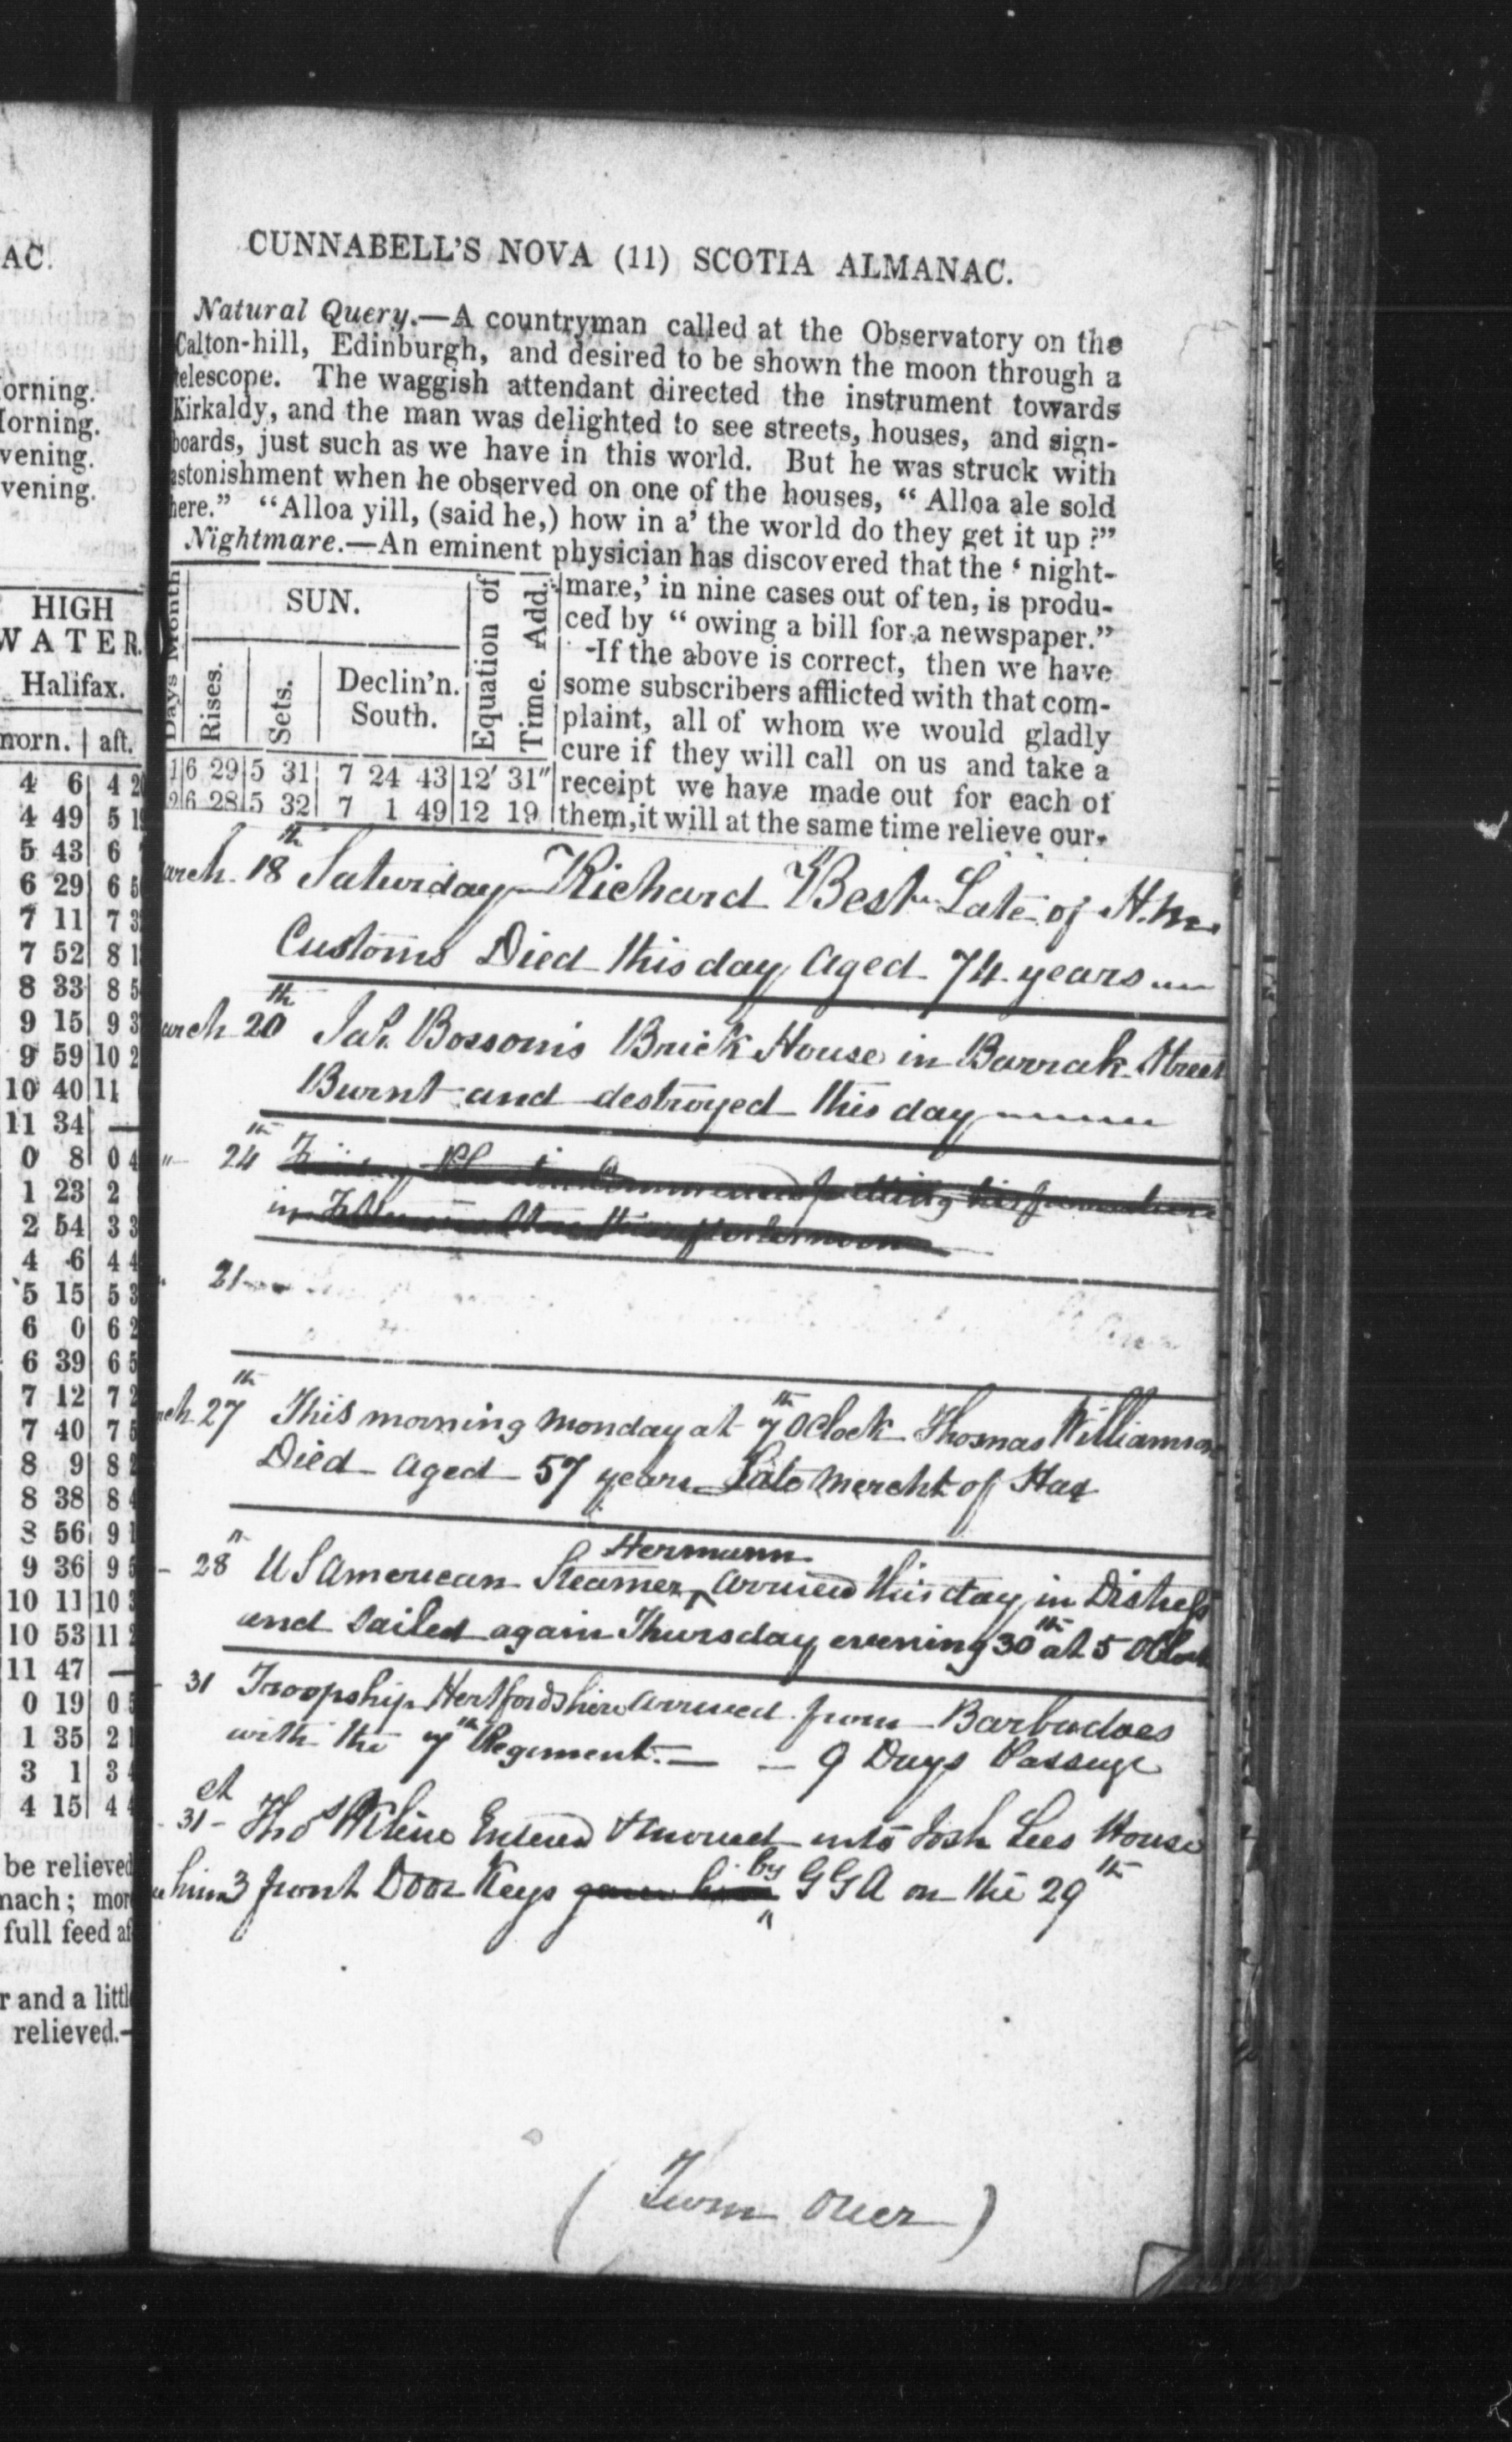 AC.
orning.
orning.
vening.
vening.
HIGH
WATER.
Halifax.
morn. | aft.
4 6 4
4 49 5
5 43 6
6 29 6
7 11 7
7 52 8
8 33 8
9 15 9
9 59 10
10 40 11
11 34 —
0 8 0
1 23 2
2 54 3
4 6 4
5 15 5
6 0 6
6 39 6
7 12 7
7 40 7
8 9 8
8 38 8
8 56 9
9 36 9
10 11 10
10 53 11
11 47 —
0 19 0
1 35 2
3 1 3
4 15 4
be relieved
mach; mor
full feed af
r and a littl
relieved.-
CUNNABELL'S NOVA (11) SCOTIA ALMANAC.
Natural Query.—A countryman called at the Observatory on the
Calton-hill, Edinburgh, and desired to be shown the moon through a
telescope. The waggish attendant directed the instrument towards
Kirkaldy, and the man was delighted to see streets, houses, and sign-
boards, just such as we have in this world. But he was struck with
astonishment when he observed on one of the houses, "Alloa ale sold
here." "Alloa yill, (said he,) how in a' the world do they get it up?"
Nightmare.—An eminent physician has discovered that the 'night-
mare,' in nine cases out of ten, is produ-
ced by "owing a bill for a newspaper."
-If the above is correct, then we have
some subscribers afflicted with that com-
plaint, all of whom we would gladly
cure if they will call on us and take a
receipt we have made out for each of
them, it will at the same time relieve our-
Days Month
SUN.
Rises.
Sets.
Declin'n.
South.
Equation of
Time. Add.
1 6 29 5 31 7 24 43 12' 31"
2 6 28 5 32 7 1 49 12 19
arch 18th Saturday Richard Best Late of H.M.
Customs Died this day Aged 74 years
arch 20th Jas. Bossom's Brick House in Barrak Street
Burnt and destroyed this day
" 24th
in this afternoon
" 21
rch 27th This morning Monday at 7th OClock Thomas Williamson
Died Aged 57 years Late Mercht of Hax
Hermann
- 28th U S American Steamer ^ arrived this day in Distress
and Sailed again Thursday evening 30th at 5 OClock
- 31 Troopship Hertfordshire arrived from Barbadoes
with the 7th Regiment.— — 9 Days Passage
- 31 - Thos Kline Entered & moved into Josh Lees House
him 3 front Door Keys gave him by GGA on the 29th
(Turn over)